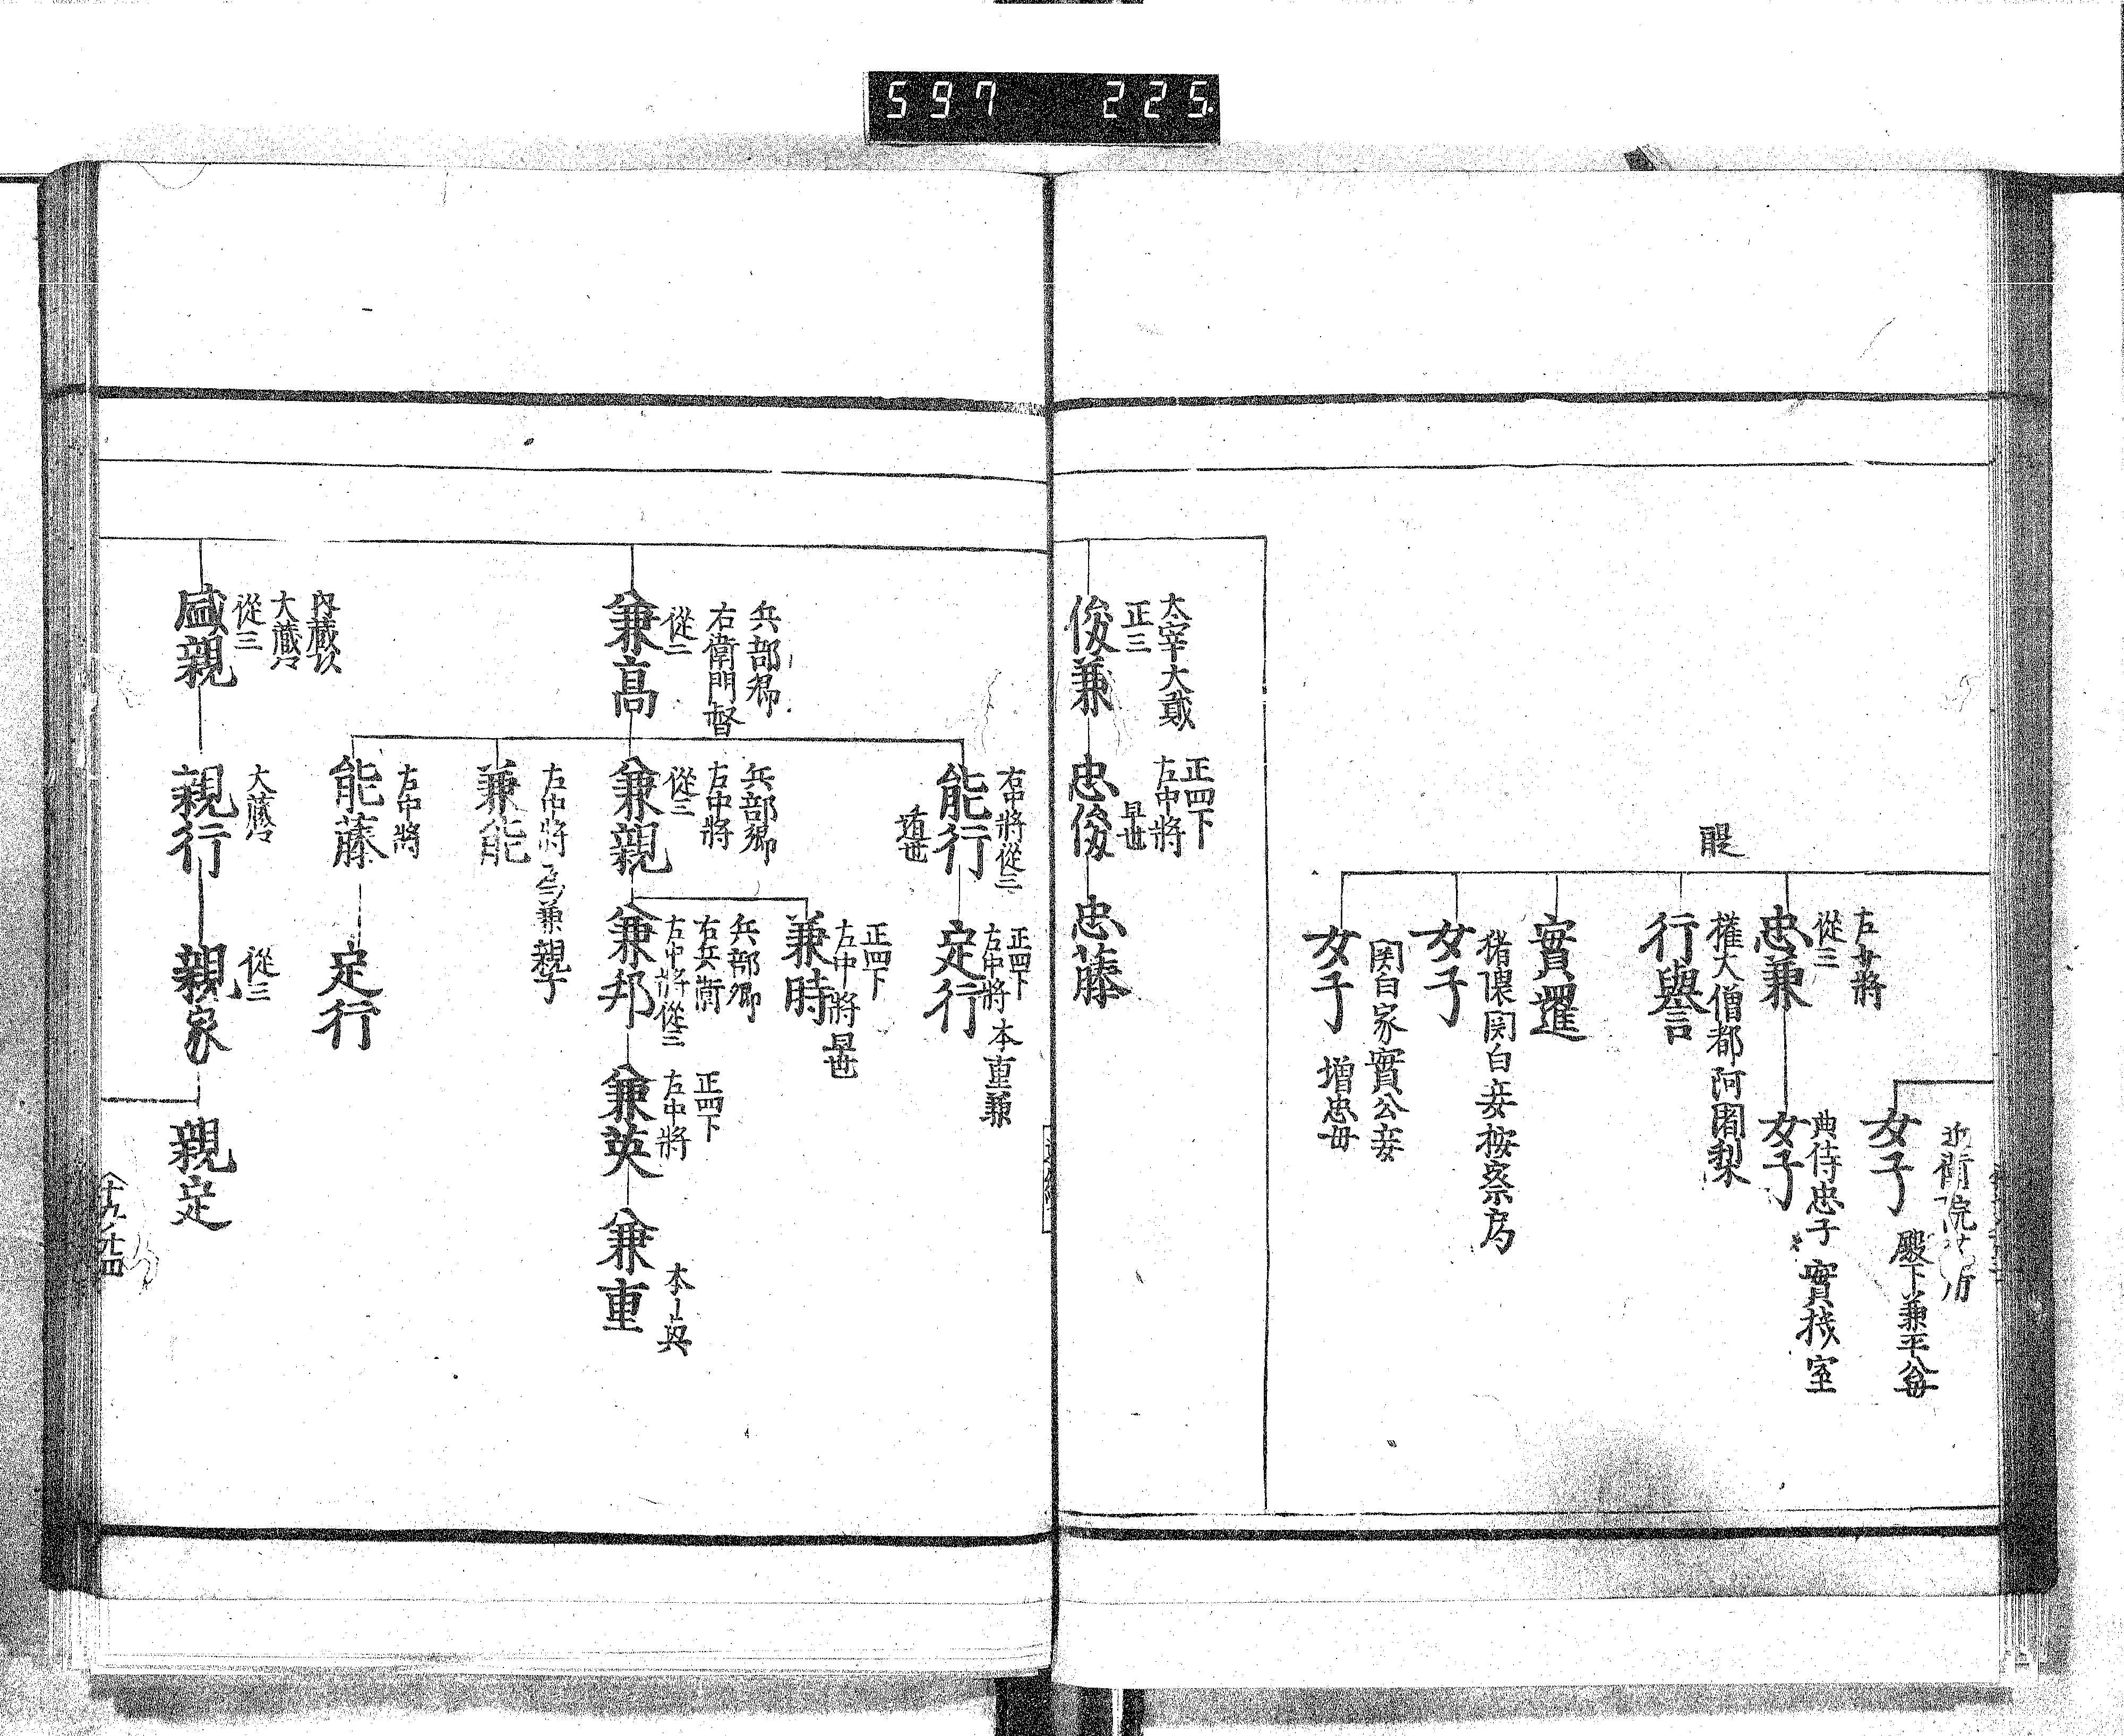 597 225
女子
殿下兼平公母
左少將
從三
忠兼
典侍忠子
實授室
女子
醍
權大僧都阿闍梨
行譽
實暹
猪隈関白妾按察房
女子
関白家實公妾
女子
増忠母
太宰大貳
正三
俊兼
正四下
左中將
早世
忠俊
忠藤
右中將從三
能行
正四下
左中將本重兼
定行
兵部卿
右衛門督
從二
兼高
兵部卿
左中將
從三
兼親
正四下
左中將早世
兼時
兵部卿
右兵衛
左中將從三
兼邦
正四下
左中將
兼英
兼重
左中將為兼親子
兼能
左中將
能藤
定行
內藏
大藏
從三
盛親
大藏
親行
從三
親家
親定